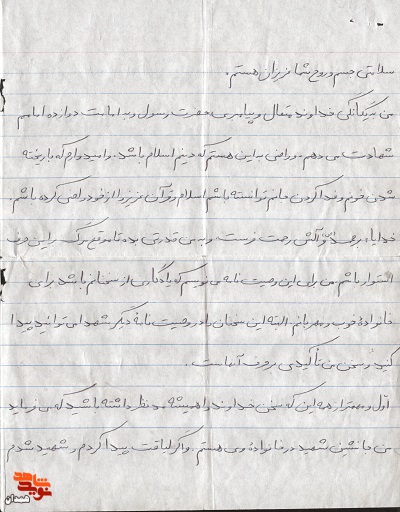 سلامتی جسم و روح شما عزیزان هستم.
من به یگانگی خداوند متعال و پیامبری حضرت رسول و به امامت دوازده امامم
شهادت می دهم و راضی به این هستم که دینم اسلام باشد. و امیدوارم که با ریخته
شدن خونم و فدا کردن جانم توانسته باشم اسلام و قرآن عزیز را از خود راضی کرده باشم.
خدایا بر محمد و آلش رحمت فرست و به من قدرتی بده تا موقع مرگ بر این حرف
استوار باشم. من برای این وصیت نامه می نویسم که یادگاری از سخنانم باشد برای
خانواده خوب و مهربانم. البته این سخنان را در وصیت نامه دیگر شهدا می توانید پیدا
کنید و سخن من تأکیدی بر حرف آنهاست.
اول و مهمتر از همه این که سخن خداوند را همیشه مد نظر داشته باشید که می فرماید
من جانشین شهید در خانواده وی هستم. و اگر لیاقت پیدا کردم و شهید شدم
نوید شاهد